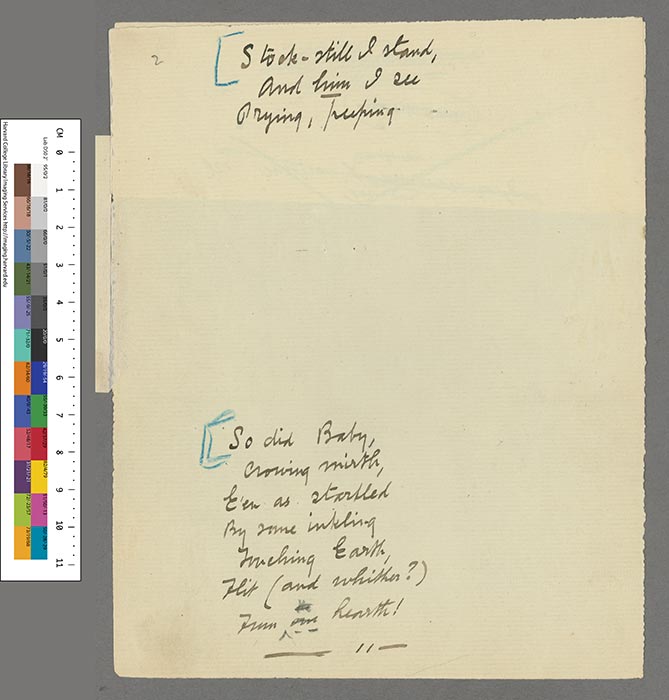 2
Stock-still I stand,
And him I see
Prying, peeping
So did Baby,
Crowing mirth,
E'en as startled
By some inkling
Touching Earth,
Flit (and whither?)
From our hearth!
CM 0 1 2 3 4 5 6 7 8 9 10 11
Harvard College Library Imaging Services http://imaging.harvard.edu